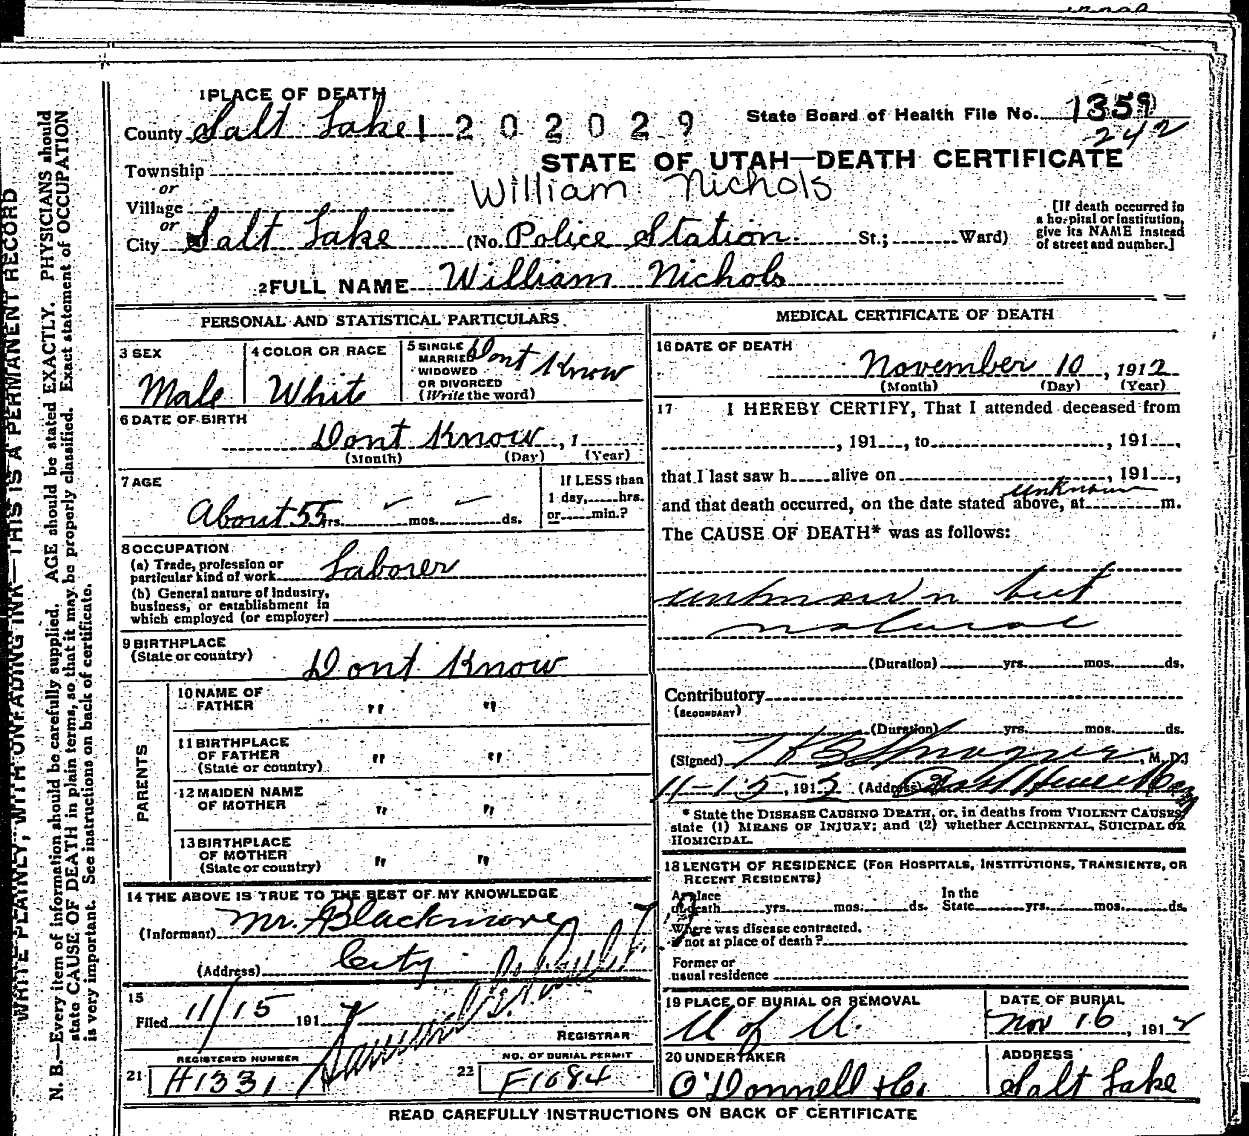 1 PLACE OF DEATH
County Salt Lake 1202029
State Board of Health File No. 1359
242
Township
STATE OF UTAH—DEATH CERTIFICATE
or
William Nichols
Village
or
City Salt Lake (No. Police Station St.; Ward)
[If death occurred in
a hospital or institution,
give its NAME instead
of street and number.]
2 FULL NAME William Nichols
PERSONAL AND STATISTICAL PARTICULARS
3 SEX
Male
4 COLOR OR RACE
White
5 SINGLE
MARRIED
WIDOWED
OR DIVORCED
(Write the word)
Dont Know
6 DATE OF BIRTH
Dont Know, 1
(Month) (Day) (Year)
7 AGE
About 55 yrs. — mos. — ds.
If LESS than
1 day, hrs.
or min.?
8 OCCUPATION
(a) Trade, profession or
particular kind of work Laborer
(b) General nature of industry,
business, or establishment in
which employed (or employer)
9 BIRTHPLACE
(State or country)
Dont Know
PARENTS
10 NAME OF
FATHER " "
11 BIRTHPLACE
OF FATHER
(State or country) " "
12 MAIDEN NAME
OF MOTHER " "
13 BIRTHPLACE
OF MOTHER
(State or country) " "
14 THE ABOVE IS TRUE TO THE BEST OF MY KNOWLEDGE
(Informant) Mr. Blackmore
(Address) City
15
Filed 11/15 191
REGISTRAR
REGISTERED NUMBER
21 H1331
NO. OF BURIAL PERMIT
22 F1684
MEDICAL CERTIFICATE OF DEATH
16 DATE OF DEATH
November 10, 1912
(Month) (Day) (Year)
17 I HEREBY CERTIFY, That I attended deceased from
, 191 , to , 191 ,
that I last saw h alive on , 191 ,
unknown
and that death occurred, on the date stated above, at m.
The CAUSE OF DEATH* was as follows:
unknown but
natural
(Duration) yrs. mos. ds.
Contributory
(SECONDARY)
(Duration) yrs. mos. ds.
(Signed) , M. D.
11-15, 191 (Address)
* State the DISEASE CAUSING DEATH, or, in deaths from VIOLENT CAUSES,
state (1) MEANS OF INJURY; and (2) whether ACCIDENTAL, SUICIDAL OR
HOMICIDAL.
18 LENGTH OF RESIDENCE (FOR HOSPITALS, INSTITUTIONS, TRANSIENTS, OR
RECENT RESIDENTS)
At place In the
of death yrs. mos. ds. State yrs. mos. ds.
Where was disease contracted,
if not at place of death?
Former or
usual residence
19 PLACE OF BURIAL OR REMOVAL
U of U.
DATE OF BURIAL
Nov 16, 1912
20 UNDERTAKER
O'Donnell & Co.
ADDRESS
Salt Lake
READ CAREFULLY INSTRUCTIONS ON BACK OF CERTIFICATE
WRITE PLAINLY, WITH UNFADING INK—THIS IS A PERMANENT RECORD
N. B.—Every item of information should be carefully supplied. AGE should be stated EXACTLY. PHYSICIANS should
state CAUSE OF DEATH in plain terms, so that it may be properly classified. Exact statement of OCCUPATION
is very important. See instructions on back of certificate.